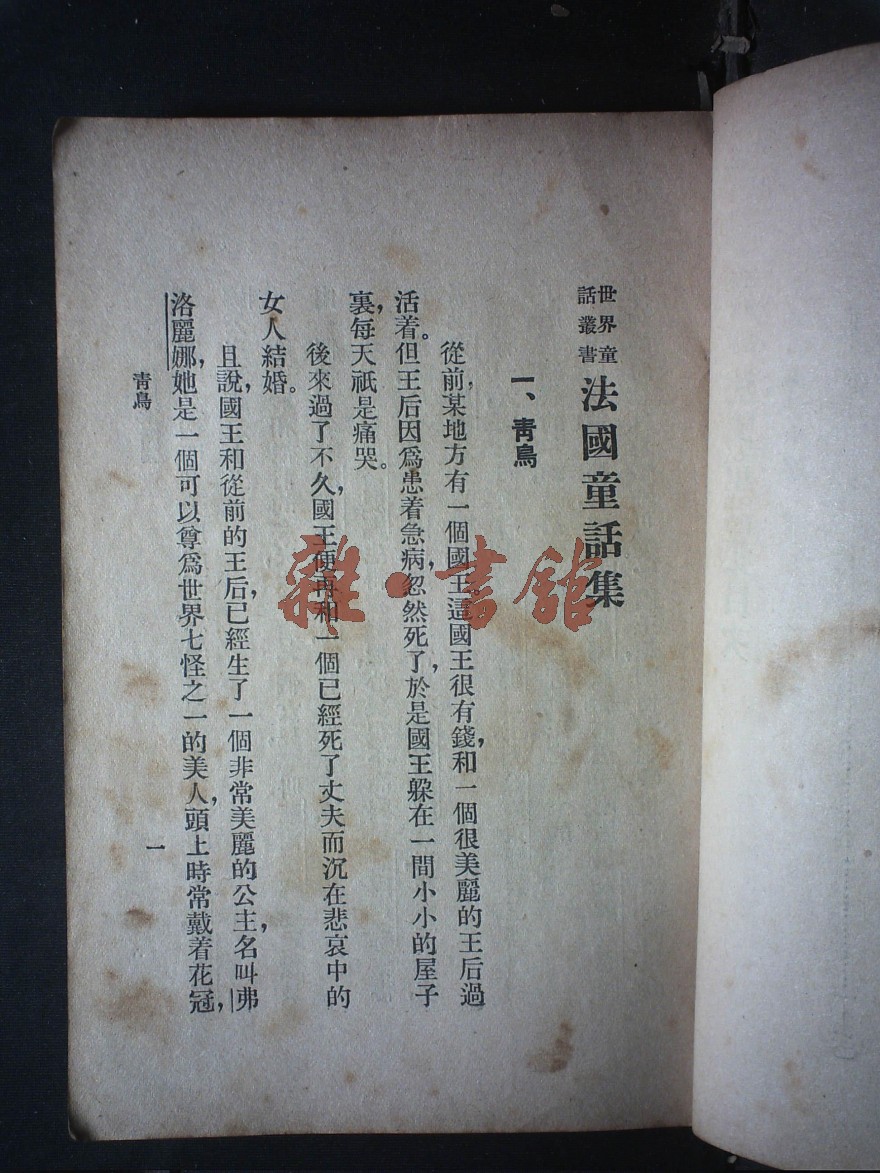 世界童
話叢書
法國童話集
一、青鳥
從前，某地方有一個國王這國王很有錢，和一個很美麗的王后過
活着。但王后因爲患着急病，忽然死了，於是國王躲在一間小小的屋子
裏，每天祇是痛哭。
後來過了不久，國王便再和一個已經死了丈夫而沉在悲哀中的
女人結婚。
且說，國王和從前的王后，已經生了一個非常美麗的公主，名叫弗
洛麗娜，她是一個可以尊爲世界七怪之一的美人，頭上時常戴着花冠，
青鳥
一
雜·書館